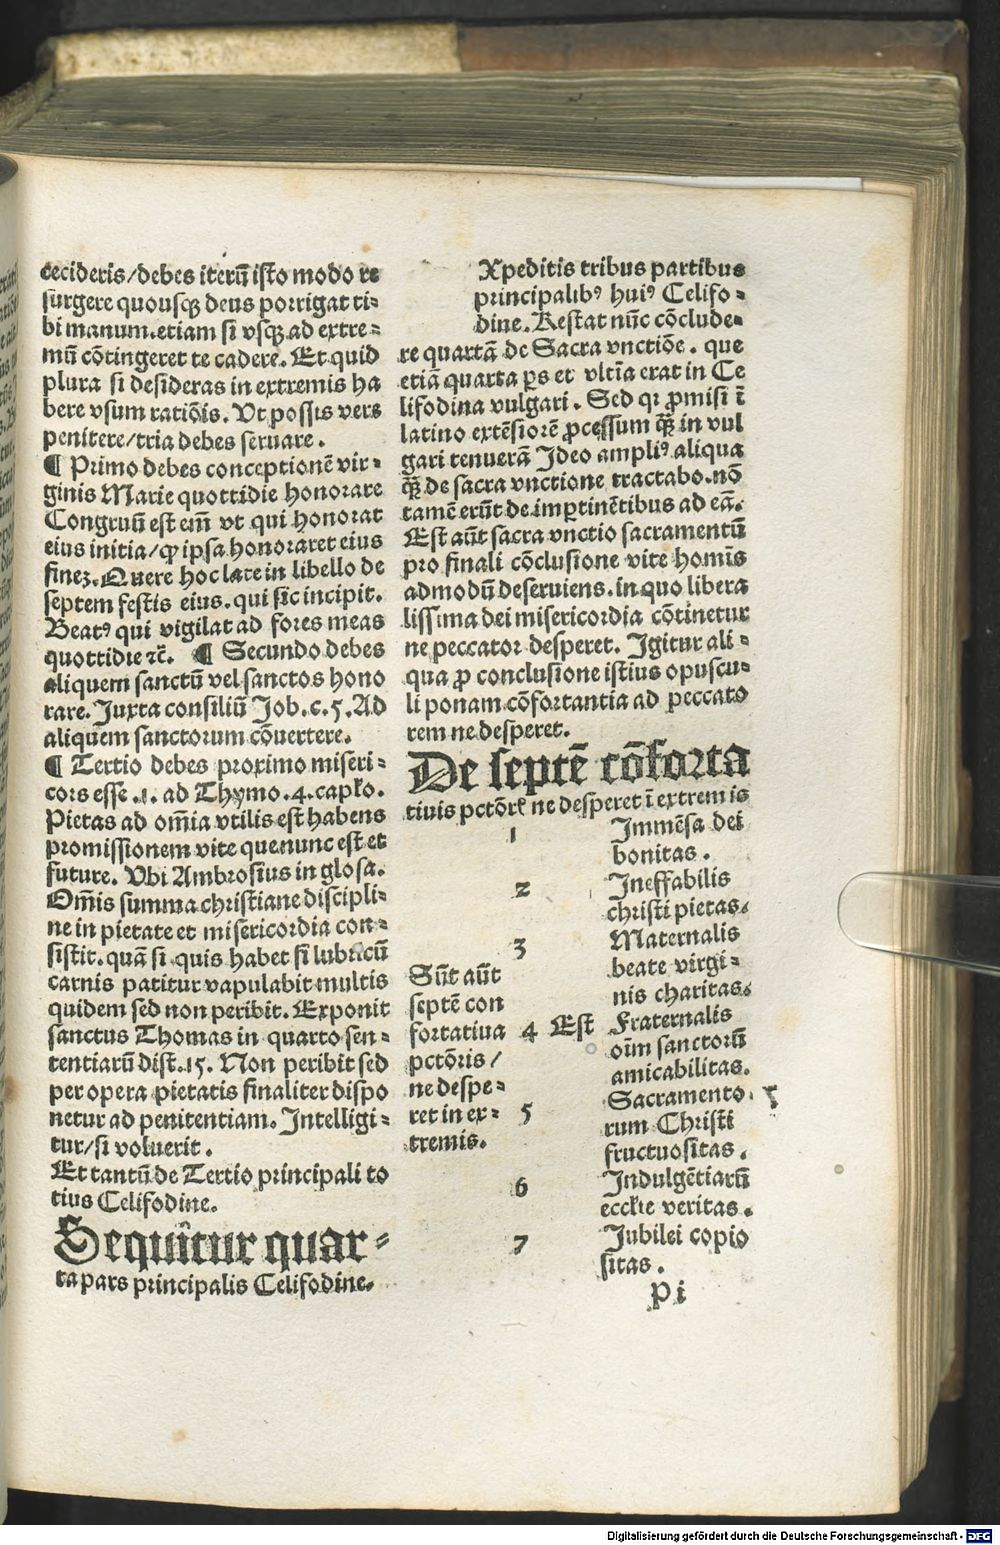 cecideris/debes iterū isto modo re
surgere quousqꝫ deus porrigat ti-
bi manum.etiam si vsqꝫ ad extre-
mū cōtingeret te cadere. Et quid
plura si desideras in extremis ha
bere vsum ratiōis. Vt possis vere
penitere/tria debes seruare.
¶ Primo debes conceptionē vir-
ginis Marie quottidie honorare
Congruū est em̄ vt qui honorat
eius initia/ꝙ ipsa honoraret eius
finez. Quere hoc late in libello de
septem festis eius. qui sic incipit.
Beatꝰ qui vigilat ad fores meas
quottidie ⁊c̄. ¶ Secundo debes
aliquem sanctū vel sanctos hono
rare. Juxta consiliū Job. c. 5. Ad
aliquem sanctorum cōuertere.
¶ Tertio debes proximo miseri-
cors esse .1. ad Thymo. 4. capło.
Pietas ad om̄ia vtilis est habens
promissionem vite que nunc est et
future. Vbi Ambrosius in glosa.
Om̄is summa christiane discipli-
ne in pietate et misericordia con-
sistit. quā si quis habet si lubricū
carnis patitur vapulabit multis
quidem sed non peribit. Exponit
sanctus Thomas in quarto sen-
tentiarū dist. 15. Non peribit sed
per opera pietatis finaliter dispo
netur ad penitentiam. Intelligi-
tur/si voluerit.
Et tantū de Tertio principali to
tius Celifodine.
Sequitur quar-
ta pars principalis Celifodine.
Xpeditis tribus partibus
principalibꝰ huiꝰ Celifo-
dine. Restat nūc cōclude-
re quartā de Sacra vnctiōe. que
etiā quarta ꝑs et vltīa erat in Ce
lifodina vulgari. Sed qꝛ ꝓmisi ī
latino extēsiorē ꝓcessum qꝫ̄ in vul
gari tenuerā Ideo ampliꝰ aliqua
qꝫ̄ de sacra vnctione tractabo. nō
tamē erūt de imꝑtinētibus ad eā.
Est aūt sacra vnctio sacramentū
pro finali cōclusione vite homīs
admodū deseruiens. in quo libera
lissima dei misericordia cōtinetur
ne peccator desperet. Igitur ali-
qua ꝓ conclusione istius opuscu-
li ponam cōfortantia ad peccato
rem ne desperet.
De septē cōforta
tiuis pctōrꝝ ne desperet ī extremis
Sūt aūt
septē con
fortatiua
pctōris/
ne despe-
ret in ex-
tremis.
Est
1 Immēsa dei
bonitas.
2 Ineffabilis
christi pietas.
3 Maternalis
beate virgi-
nis charitas.
4 Fraternalis
oīm sanctorū
amicabilitas.
5 Sacramento
rum Christi
fructuositas.
6 Indulgētiarū
ecclīe veritas.
7 Jubilei copio
sitas.
P i
Digitalisierung gefördert durch die Deutsche Forschungsgemeinschaft - DFG